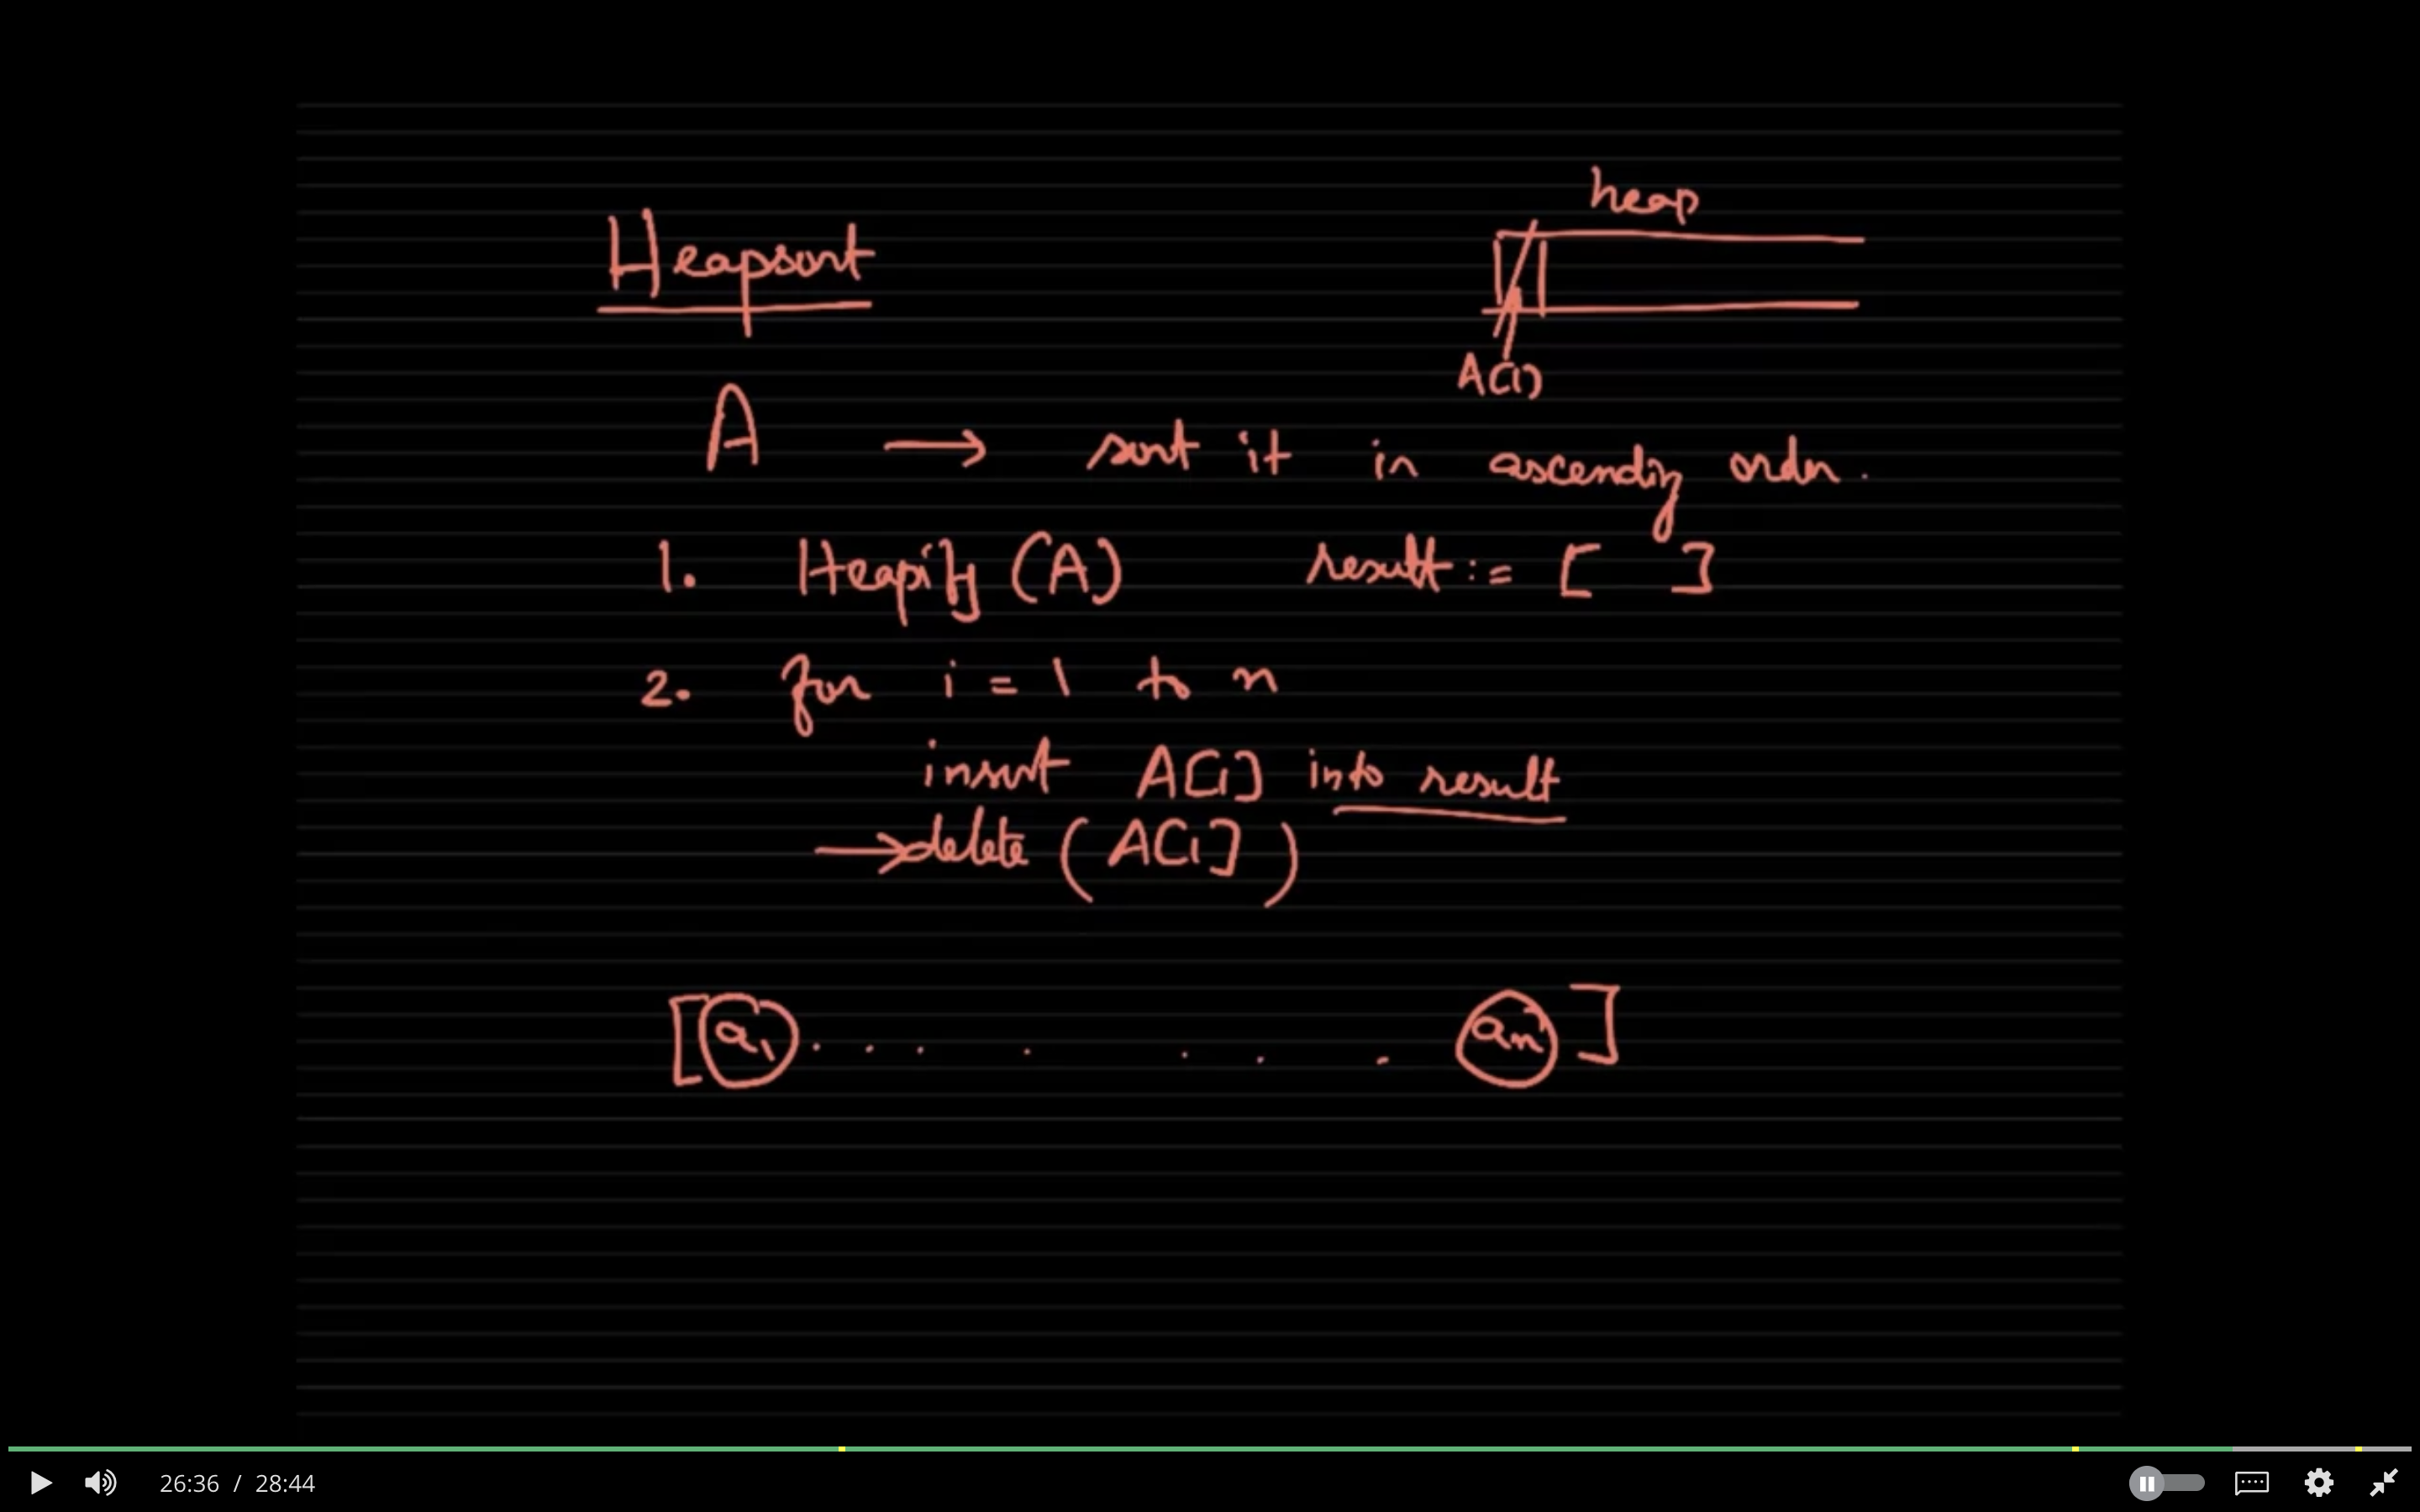 heap
Heapsort
A[1]
A → sort it in ascending order.
1. Heapify (A) result := [ ]
2. for i = 1 to n
insert A[1] into result
→ delete ( A[1] )
[ a1 . . . . . . . an ]
26:36 / 28:44